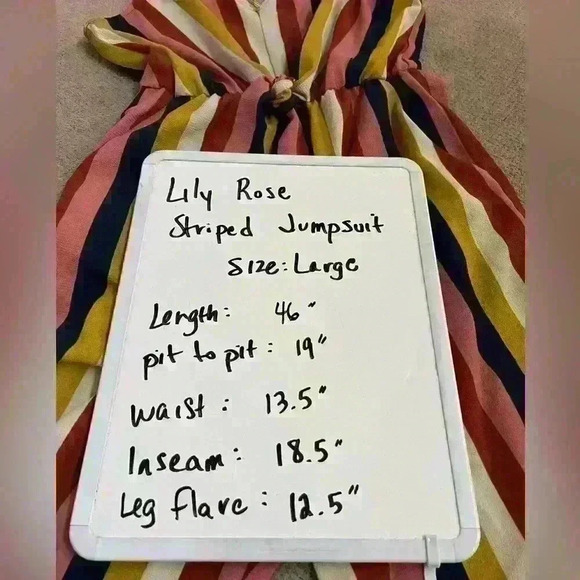 Lily Rose
Striped Jumpsuit
Size: Large
Length: 46"
pit to pit: 19"
waist: 13.5"
Inseam: 18.5"
Leg flare: 12.5"